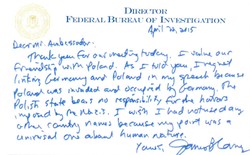 DIRECTOR
FEDERAL BUREAU OF INVESTIGATION
April 22, 2015
Dear Mr. Ambassador-
Thank you for our meeting today. I value our
friendship with Poland. As I told you, I regret
linking Germany and Poland in my speech because
Poland was invaded and occupied by Germany. The
Polish state bears no responsibility for the horrors
imposed by the Nazis. I wish I had not used any
other country names because my point was a
universal one about human nature.
Yours,